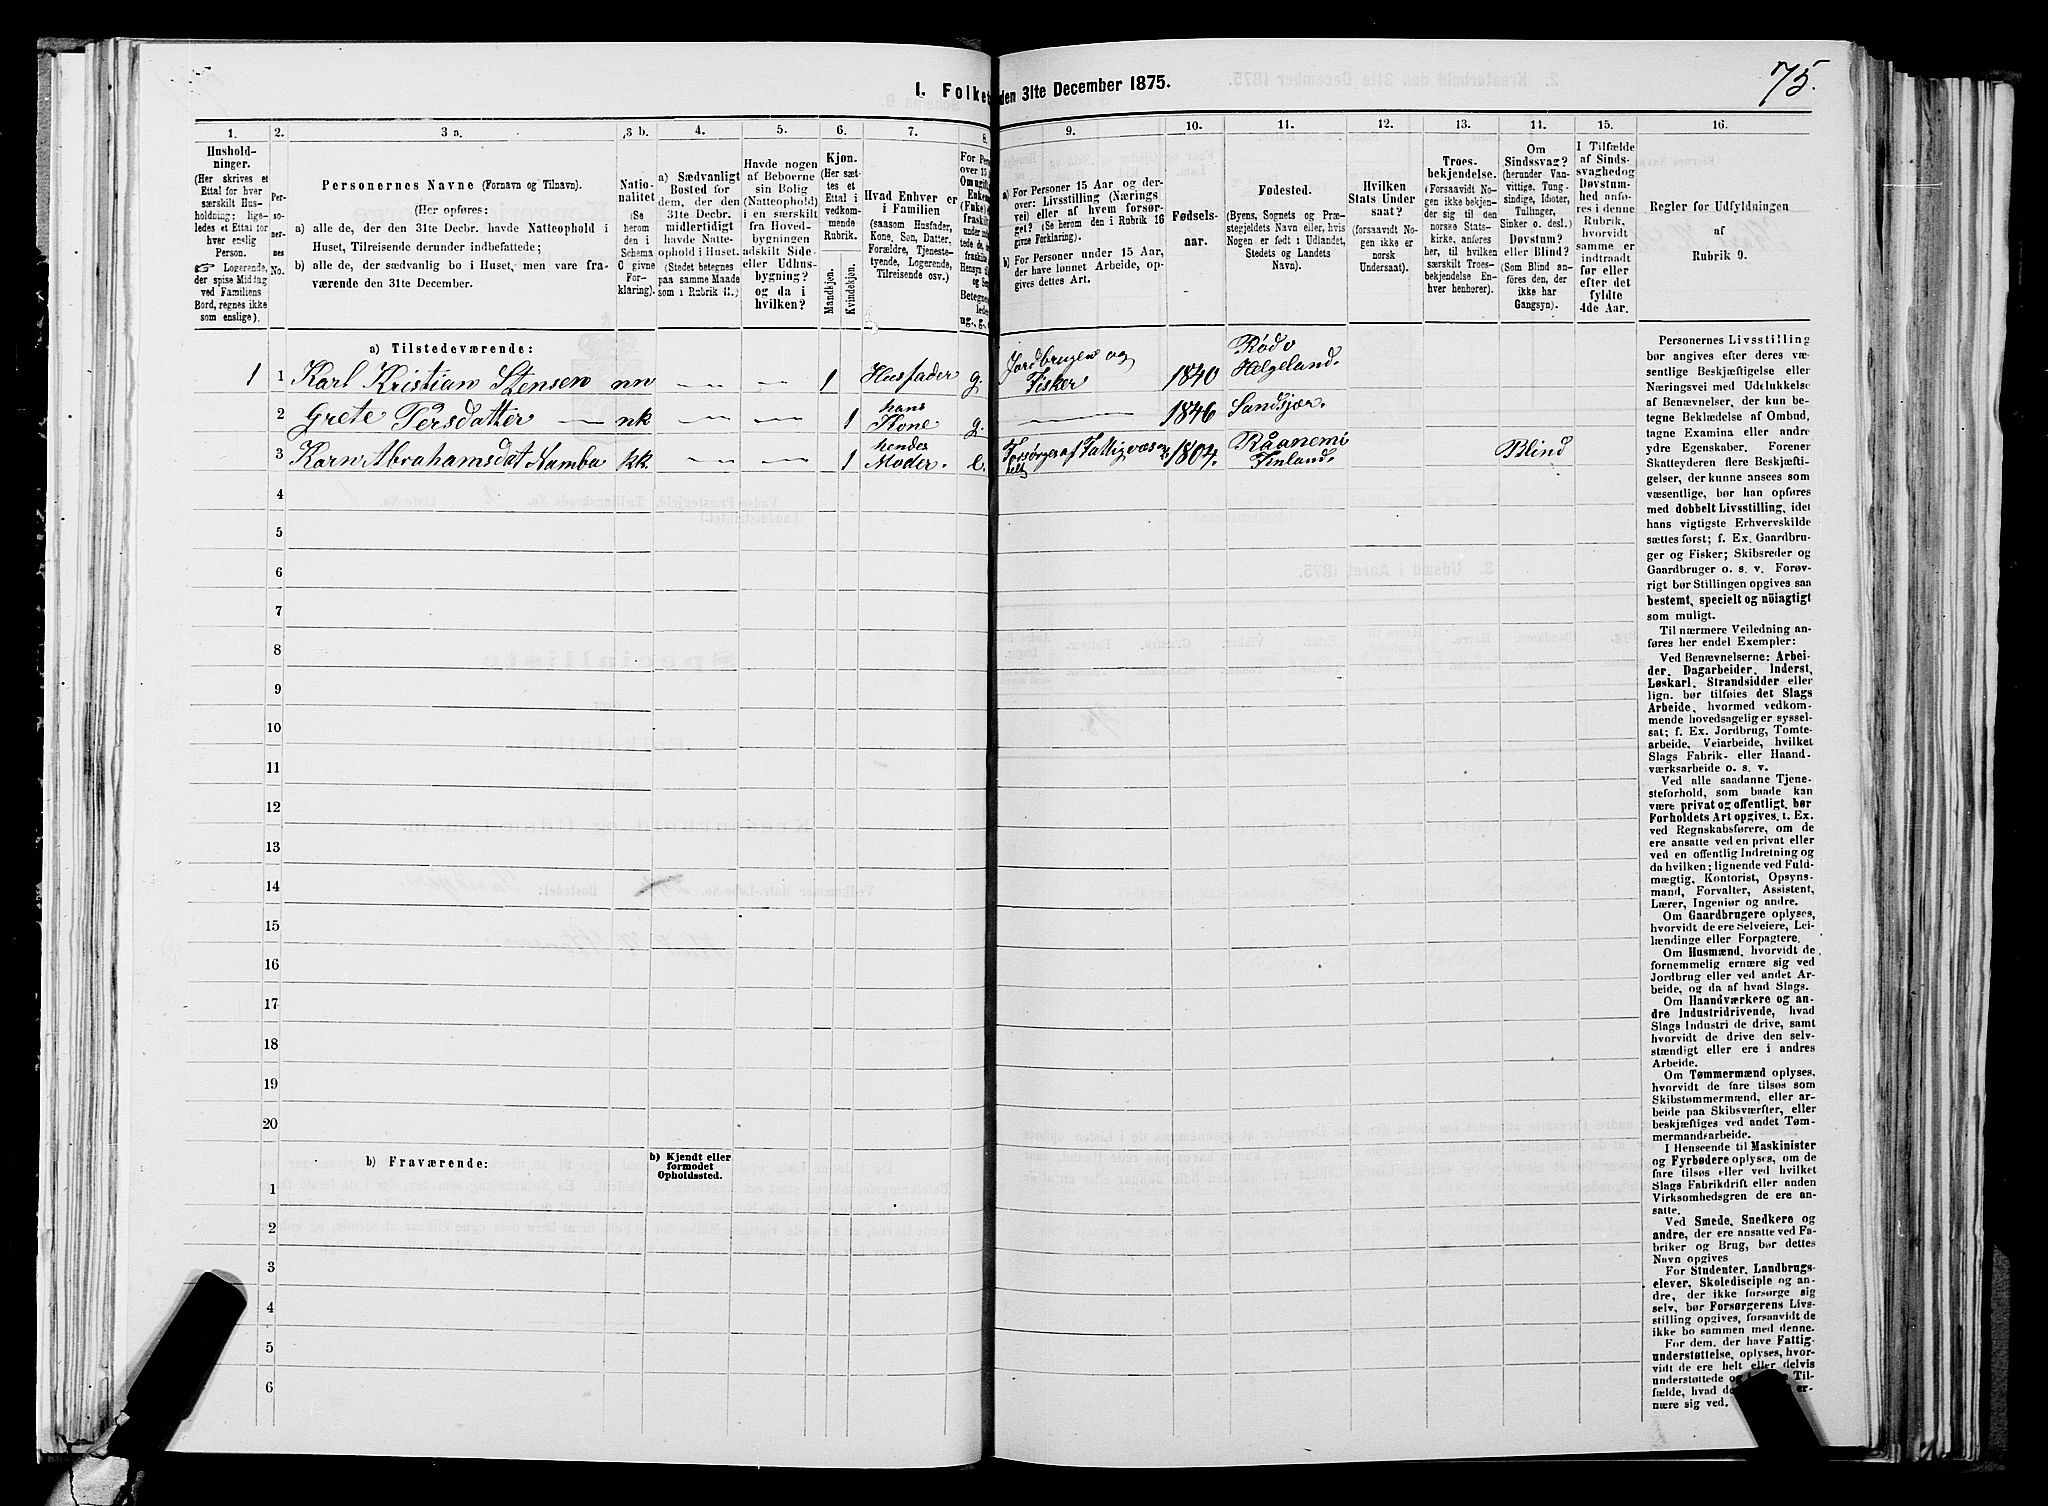 75.
I. Folket
den 31te December 1875.
1.
2.
3 a.
3 b.
4.
5.
6.
7.
8.
9.
10.
11.
12.
13.
14.
15.
16.
Hushold-
ninger.
(Her skrives et
Ettal for hver
særskilt Hus-
holdning; lige-
ledes et Ettal for
hver enslig
Person.
☞ Logerende,
der spise Middag
ved Familiens
Bord, regnes ikke
som enslige).
Per-
so-
ner-
nes
No.
Personernes Navne (Fornavn og Tilnavn).
(Her opføres:
a) alle de, der den 31te Decbr. havde Natteophold i
Huset, Tilreisende derunder indbefattede;
b) alle de, der sædvanlig bo i Huset, men vare fra-
værende den 31te December.
Natio-
nalitet
(Se
herom
den i
Schema
C givne
For-
klaring).
a) Sædvanligt
Bosted for
dem, der den
31te Decbr.
midlertidigt
havde Natte-
ophold i Huset.
(Stedet betegnes
paa samme Maade
som i Rubrik 11.)
Havde nogen
af Beboerne
sin Bolig
(Natteophold)
i en særskilt
fra Hoved-
bygningen
adskilt Side-
eller Udhus-
bygning?
og da i
hvilken?
Kjøn.
(Her sæt-
tes et
Ettal i
vedkom-
mende
Rubrik.
Mandkjøn.
Kvindekjøn.
Hvad Enhver er
i Familien
(saasom Husfader,
Kone, Søn, Datter,
Forældre, Tjeneste-
tyende, Logerende,
Tilreisende osv.)
For Pers
over 15 A
Om ugift,
Enkem
(Fnke) e
fraskilt
tede de,
Hensyn til
og Se
Betegnes
lede
ug., g.,
a) For Personer 15 Aar og der-
over: Livsstilling (Nærings
vei) eller af hvem forsør-
get? (Se herom den i Rubrik 16
givne Forklaring).
b) For Personer under 15 Aar,
der have lønnet Arbeide, op-
gives dettes Art.
Fødsels-
aar.
Fødested.
(Byens, Sognets og Præ-
stegjeldets Navn eller, hvis
Nogen er født i Udlandet,
Stedets og Landets
Navn).
Hvilken
Stats Under
saat?
(forsaavidt No-
gen ikke er
norsk
Undersaat).
Troes-
bekjendelse.
(Forsaavidt No-
gen ikke bekjen-
der sig til den
norske Stats-
kirke, anføres
her, til hvilken
særskilt Troes-
bekjendelse En-
hver henhører).
Om
Sindssvag?
(herunder Van-
vittige, Tung-
sindige, Idioter,
Tullinger,
Sinker o. desl.)
Døvstum?
eller Blind?
(Som Blind an-
føres den, der
ikke har
Gangsyn).
I Tilfælde
af Sinds-
svaghed og
Døvstum-
hed anfø-
res i denne
Rubrik,
hvorvidt
samme er
indtraadt
før eller
efter det
fyldte
4de Aar.
Regler for Udfyldningen
af
Rubrik 9.
a) Tilstedeværende:
1 1 Karl Kristian Stensen nn 1 Husfader g. Jordbruger og Fisker 1840 Rödö Helgeland.
2 Grete Persdatter nk 1 hans Kone g. 1846 Sandsjær.
3 Karn Abrahamsdat Namba kk. 1 hendes Moder. e. Forsørges af Fattigvæsenet helt 1804. Råanemi Finland. Blind
4
5
6
7
8
9
10
11
12
13
14
15
16
17
18
19
20
b) Fraværende:
b) Kjendt eller
formodet
Opholdssted.
1
2
3
4
5
6
Personernes Livsstilling
bør angives efter deres væ-
sentlige Beskjæftigelse eller
Næringsvei med Udelukkelse
af Benævnelser, der kun be-
tegne Beklædelse af Ombud,
tagne Examina eller andre
ydre Egenskaber. Forener
Skatteyderen flere Beskjæfti-
gelser, der kunne ansees som
væsentlige, bør han opføres
med dobbelt Livsstilling, idet
hans vigtigste Erhvervskilde
sættes først; f. Ex. Gaardbru-
ger og Fisker; Skibsreder og
Gaardbruger o. s. v. Forøv-
rigt bør Stillingen opgives saa
bestemt, specielt og nöiagtigt
som muligt.
Til nærmere Veiledning an-
føres her endel Exempler:
Ved Benævnelserne: Arbei-
der, Dagarbeider, Inderst,
Løskarl, Strandsidder eller
lign. bør tilføies det Slags
Arbeide, hvormed vedkom-
mende hovedsagelig er syssel-
sat; f. Ex. Jordbrug, Tomte-
arbeide, Veiarbeide, hvilket
Slags Fabrik- eller Haand-
værksarbeide o. s. v.
Ved alle saadanne Tjene-
steforhold, som baade kan
være privat og offentligt, bør
Forholdets Art opgives, t. Ex.
ved Regnskabsførere, om de
ere ansatte ved en privat eller
ved en offentlig Indretning og
da hvilken; lignende ved Fuld-
mægtig, Kontorist, Opsyns-
mand, Forvalter, Assistent,
Lærer, Ingeniør og andre.
Om Gaardbrugere oplyses,
hvorvidt de ere Selveiere, Lei-
lændinge eller Forpagtere.
Om Husmænd, hvorvidt de
fornemmelig ernære sig ved
Jordbrug eller ved andet Ar-
beide, og da af hvad Slags.
Om Haandværkere og an-
dre Industridrivende, hvad
Slags Industri de drive, samt
hvorvidt de drive den selv-
stændigt eller ere i andres
Arbeide.
Om Tømmermænd oplyses,
hvorvidt de fare tilsøs som
Skibstømmermænd, eller ar-
beide paa Skibsværfter, eller
beskjæftiges ved andet Tøm-
mermandsarbeide.
I Henseende til Maskinister
og Fyrbødere oplyses, om de
fare tilsøs eller ved hvilket
Slags Fabrikdrift eller anden
Virksomhedsgren de ere an-
satte.
Ved Smede, Snedkere og
andre, der ere ansatte ved Fa-
briker og Brug, bør dettes
Navn opgives
For Studenter, Landbrugs-
elever, Skoledisciple og an-
dre, der ikke forsørge sig
selv, bør Forsørgerens Livs-
stilling opgives, forsaavidt de
ikke bo sammen med denne.
For dem, der have Fattig-
understøttelse, oplyses, hvor-
vidt de ere helt eller delvis
understøttede og Til-
fælde, hvad de er-
nære sig ved.